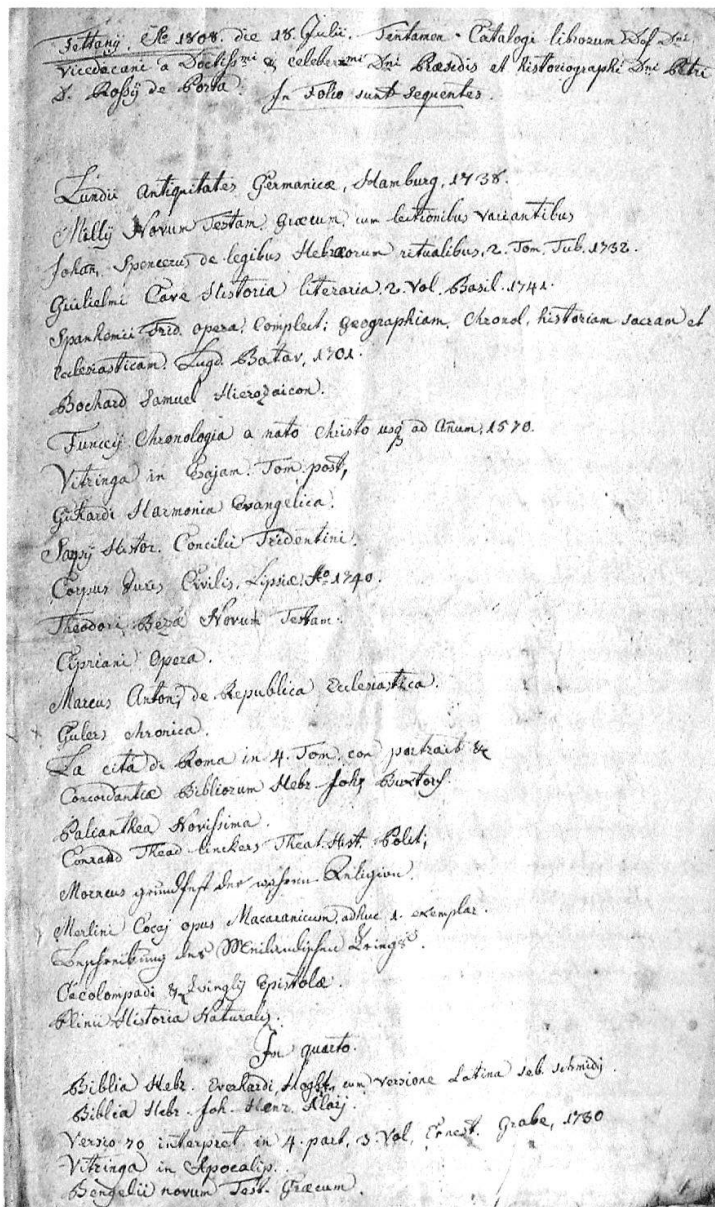 Fettanÿ. Aº 1808. die 18 Julii. Tentamen Catalogi librorum Dni
Vicedecani a Doctissmi & celeberrmi Dni Præsidis et historiographi Dni Petri
D. Rosÿ de Porta. In Folio sunt sequentes.
Lundii antiquitates Germanicæ, Hamburg, 1738.
Millÿ Novum Testam. Græcum, cum lectionibus variantibus
Johan. Spencerus de legibus Hebræorum ritualibus, 2. Tom. Tub. 1732.
Guilielmi Cave Historia literaria. 2. Vol. Basil. 1741.
Spanhemii Frid. opera, complect: Geographiam, Chronol, historiam sacram et
ecclesiasticam. Lugd. Batav, 1701.
Bochard Samuel Hierozaicon.
Funccÿ Chronologia a nato Christo usq ad Añum, 1570.
Vitringa in Esajam. Tom. post,
Harmonia Evangelica.
Histor. Concilii Tridentini.
Corpus Juris Civilis. Lipsiæ, Aº 1740.
Theodori Bezá Novum Testam.
Cipriani Opera.
Marcus Anton, de Republica Ecclesiastica.
Gulers chronica.
La cità di Roma in 4. Tom. con portrait &
Concordantiæ Bibliorum Hebr. Joh, Buxtorf.
Polianthea Novissima.
Conradd Thead linckers Theat. Hist. Polit;
Morneus grundfest der wahren Religion.
Merlini Cocaj opus Macaranicum, adhuc 1. exemplar.
Beschreibung des Meilandischen Kriegs.
Oecolompadi & Zvinglÿ Epistolæ.
Plinii Historia Naturalis.
In quarto.
Biblia Hebr. Everhardi, cum versione Latina seb. schmidÿ.
Biblia Hebr. Joh. Henr.
Versio 70 interpret. in 4. part, 3. Vol, Ernest. Grabe, 1730
Vitringa in Apocalip.
Bengelii novum Test. Græcum.